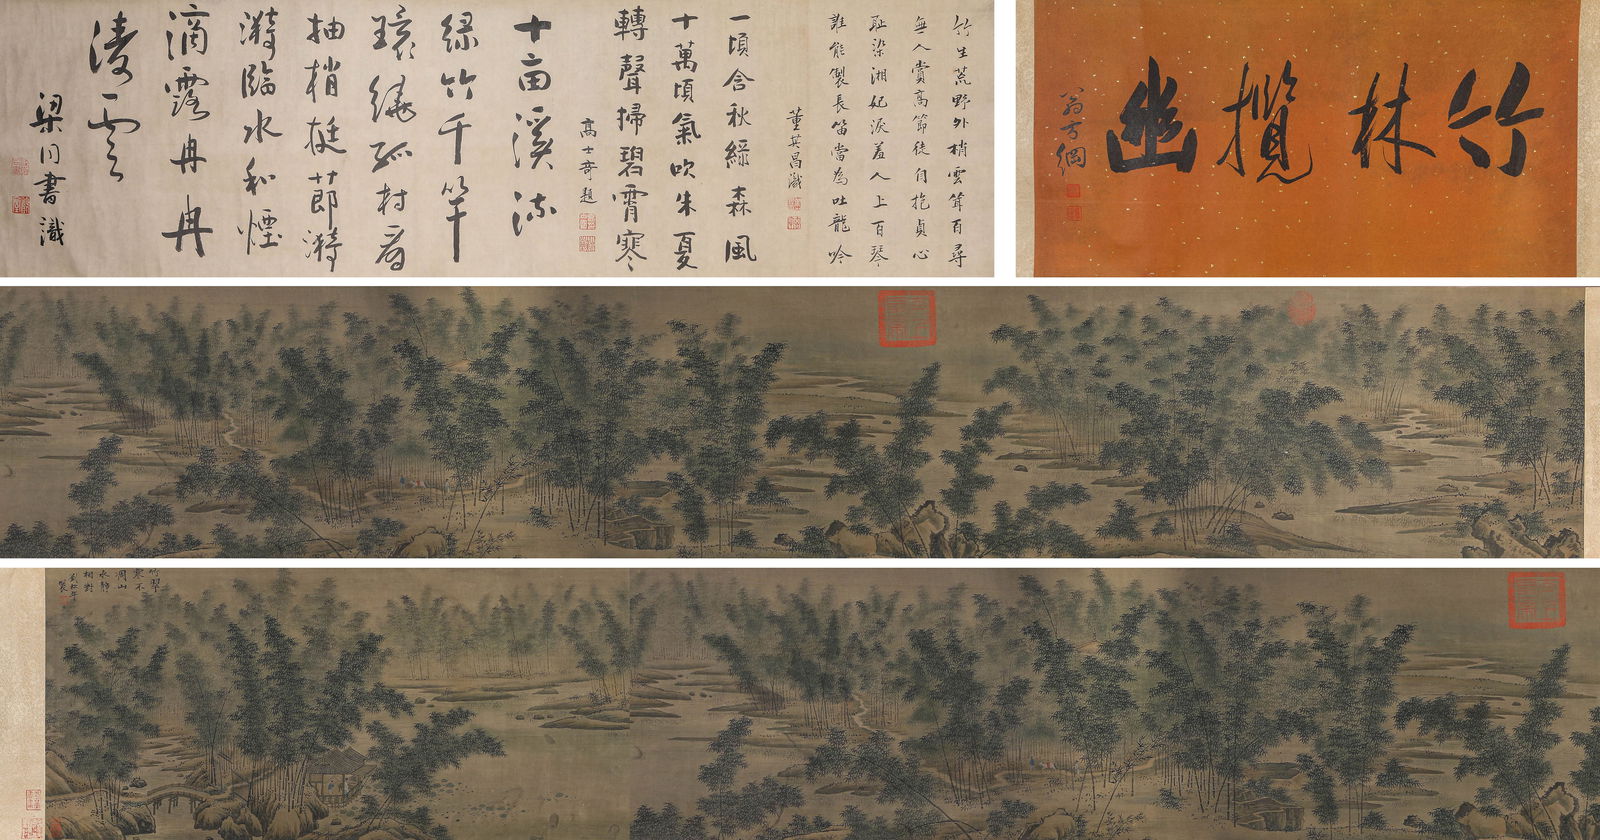 竹林攬幽
翁方綱
竹生荒野外梢雲聳百尋
無人賞高節徒自抱貞心
恥染湘妃淚羞人上百琴
誰能製長笛當為吐龍吟
董其昌識
一頃含秋綠森風
十萬頃氣吹朱夏
轉聲掃碧霄寒
高士奇題
十亩溪流
綠竹千竿
環繞孤村看
抽梢挺節漪
漪臨水和煙
滴露冉冉
凌雲
梁同書識
竹翠
寒不
凋山
水靜
相對
劉松年